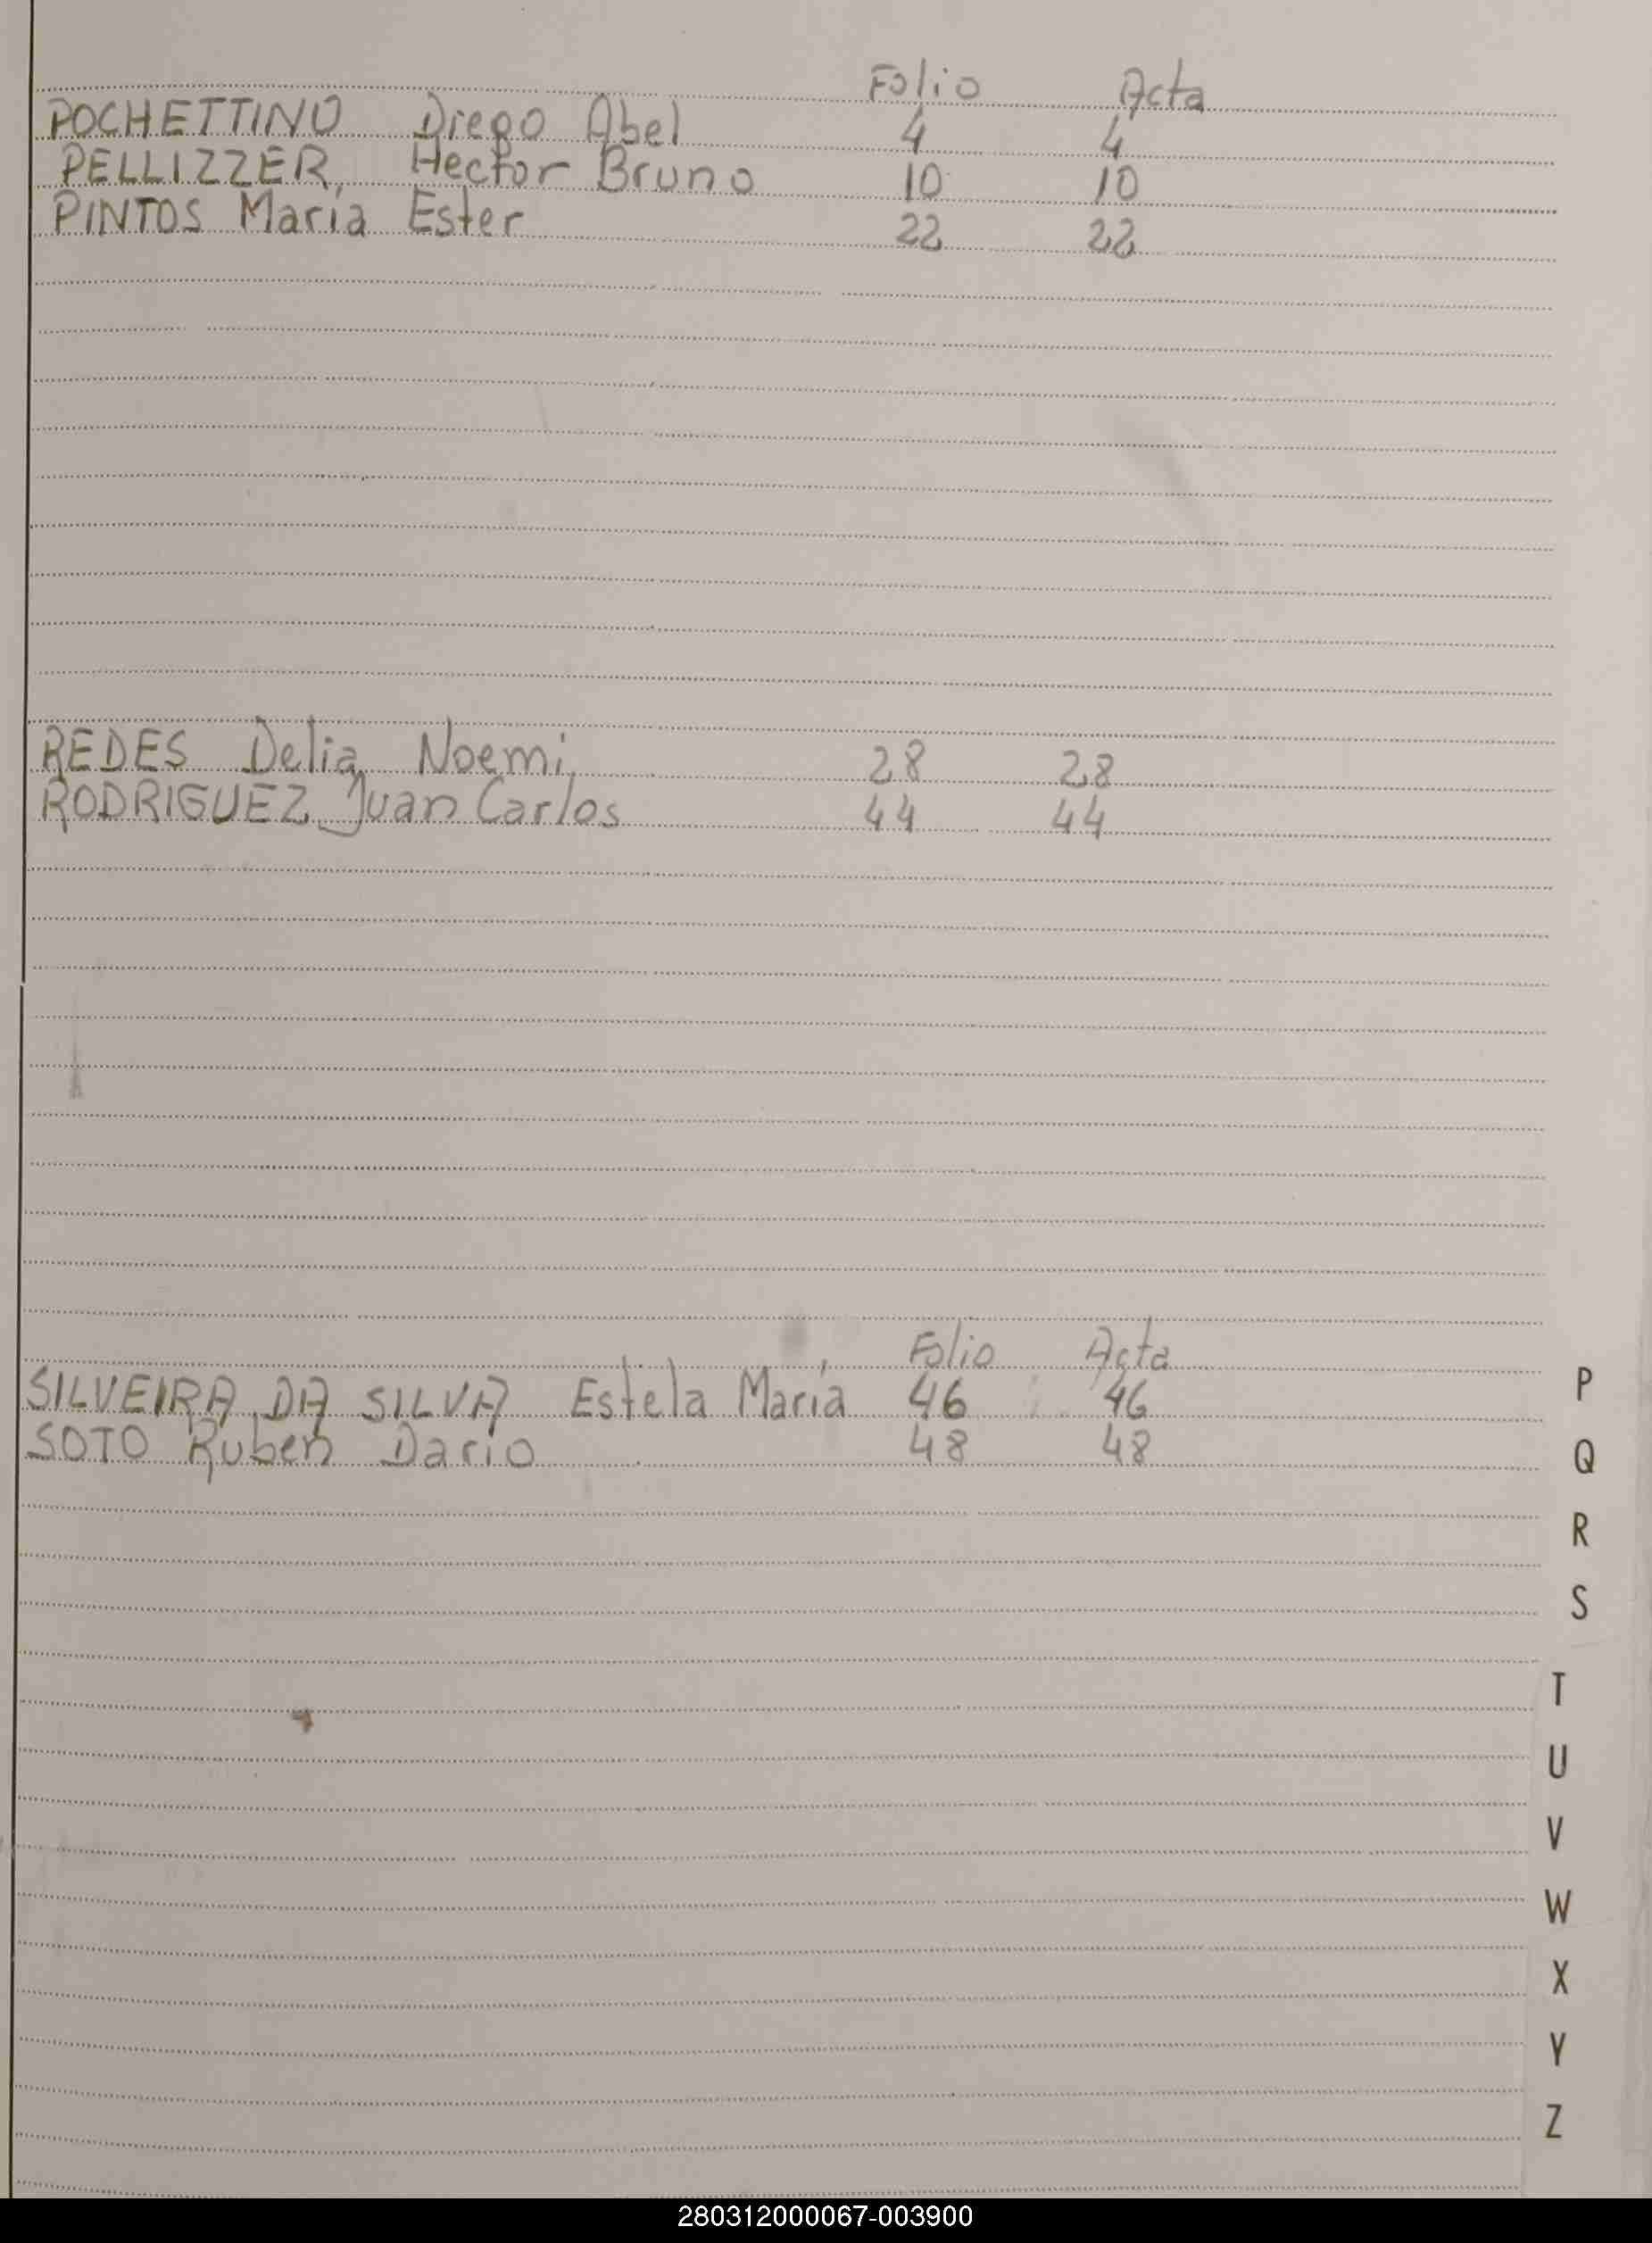 Folio Acta
POCHETTINO Diego Abel 4 4
PELLIZZER, Hector Bruno 10 10
PINTOS María Ester 22 22
REDES Delia Noemi 28 28
RODRIGUEZ Juan Carlos 44 44
Folio Acta
SILVEIRA DA SILVA Estela María 46 46
SOTO Ruben Dario 48 48
P
Q
R
S
T
U
V
W
X
Y
Z
280312000067-003900